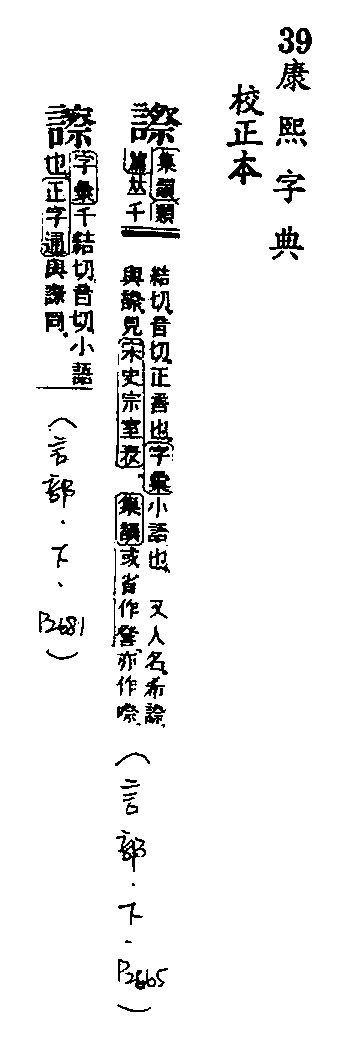 39康熙字典
校正本
集韻類
篇𠀤千
結切音切正言也字彙小語也 又人名希
與見宋史宗室表 集韻或省作詧亦作
(言部·下·P2665)
字彙千結切音切小語
也正字通與同
(言部·下·P2681)